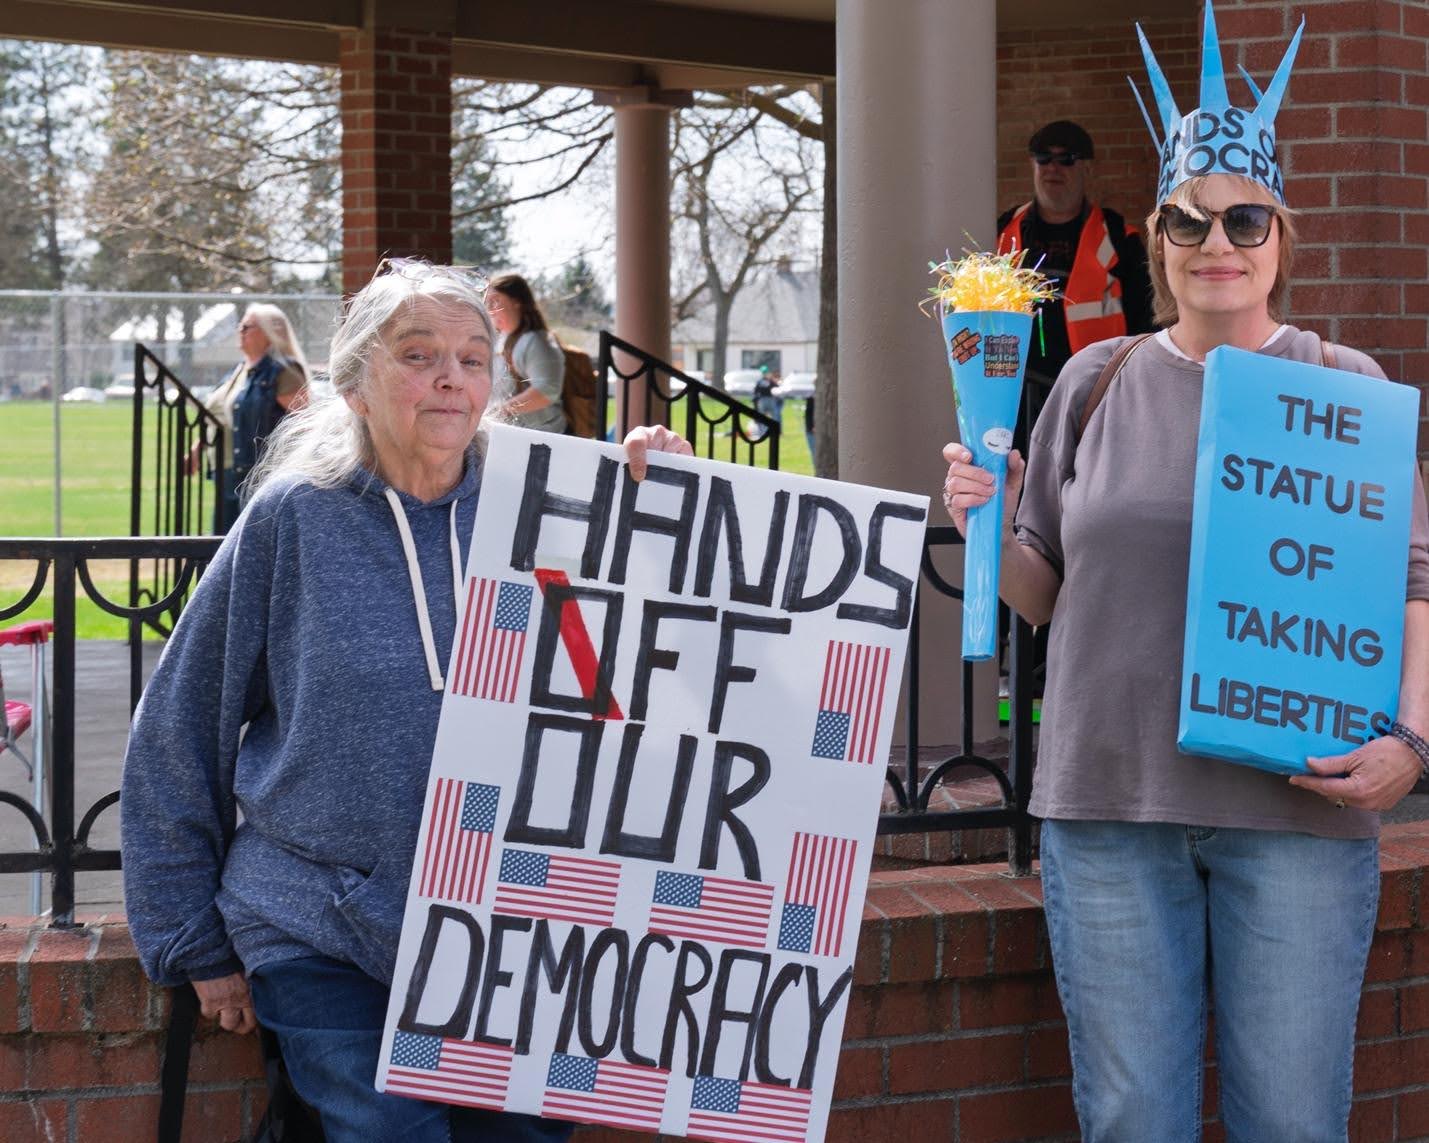 HANDS
OFF
OUR
DEMOCRACY
ANDS O
EMOCRA
I Can Explain
But I Can't
Understand
It For You
THE
STATUE
OF
TAKING
LIBERTIES